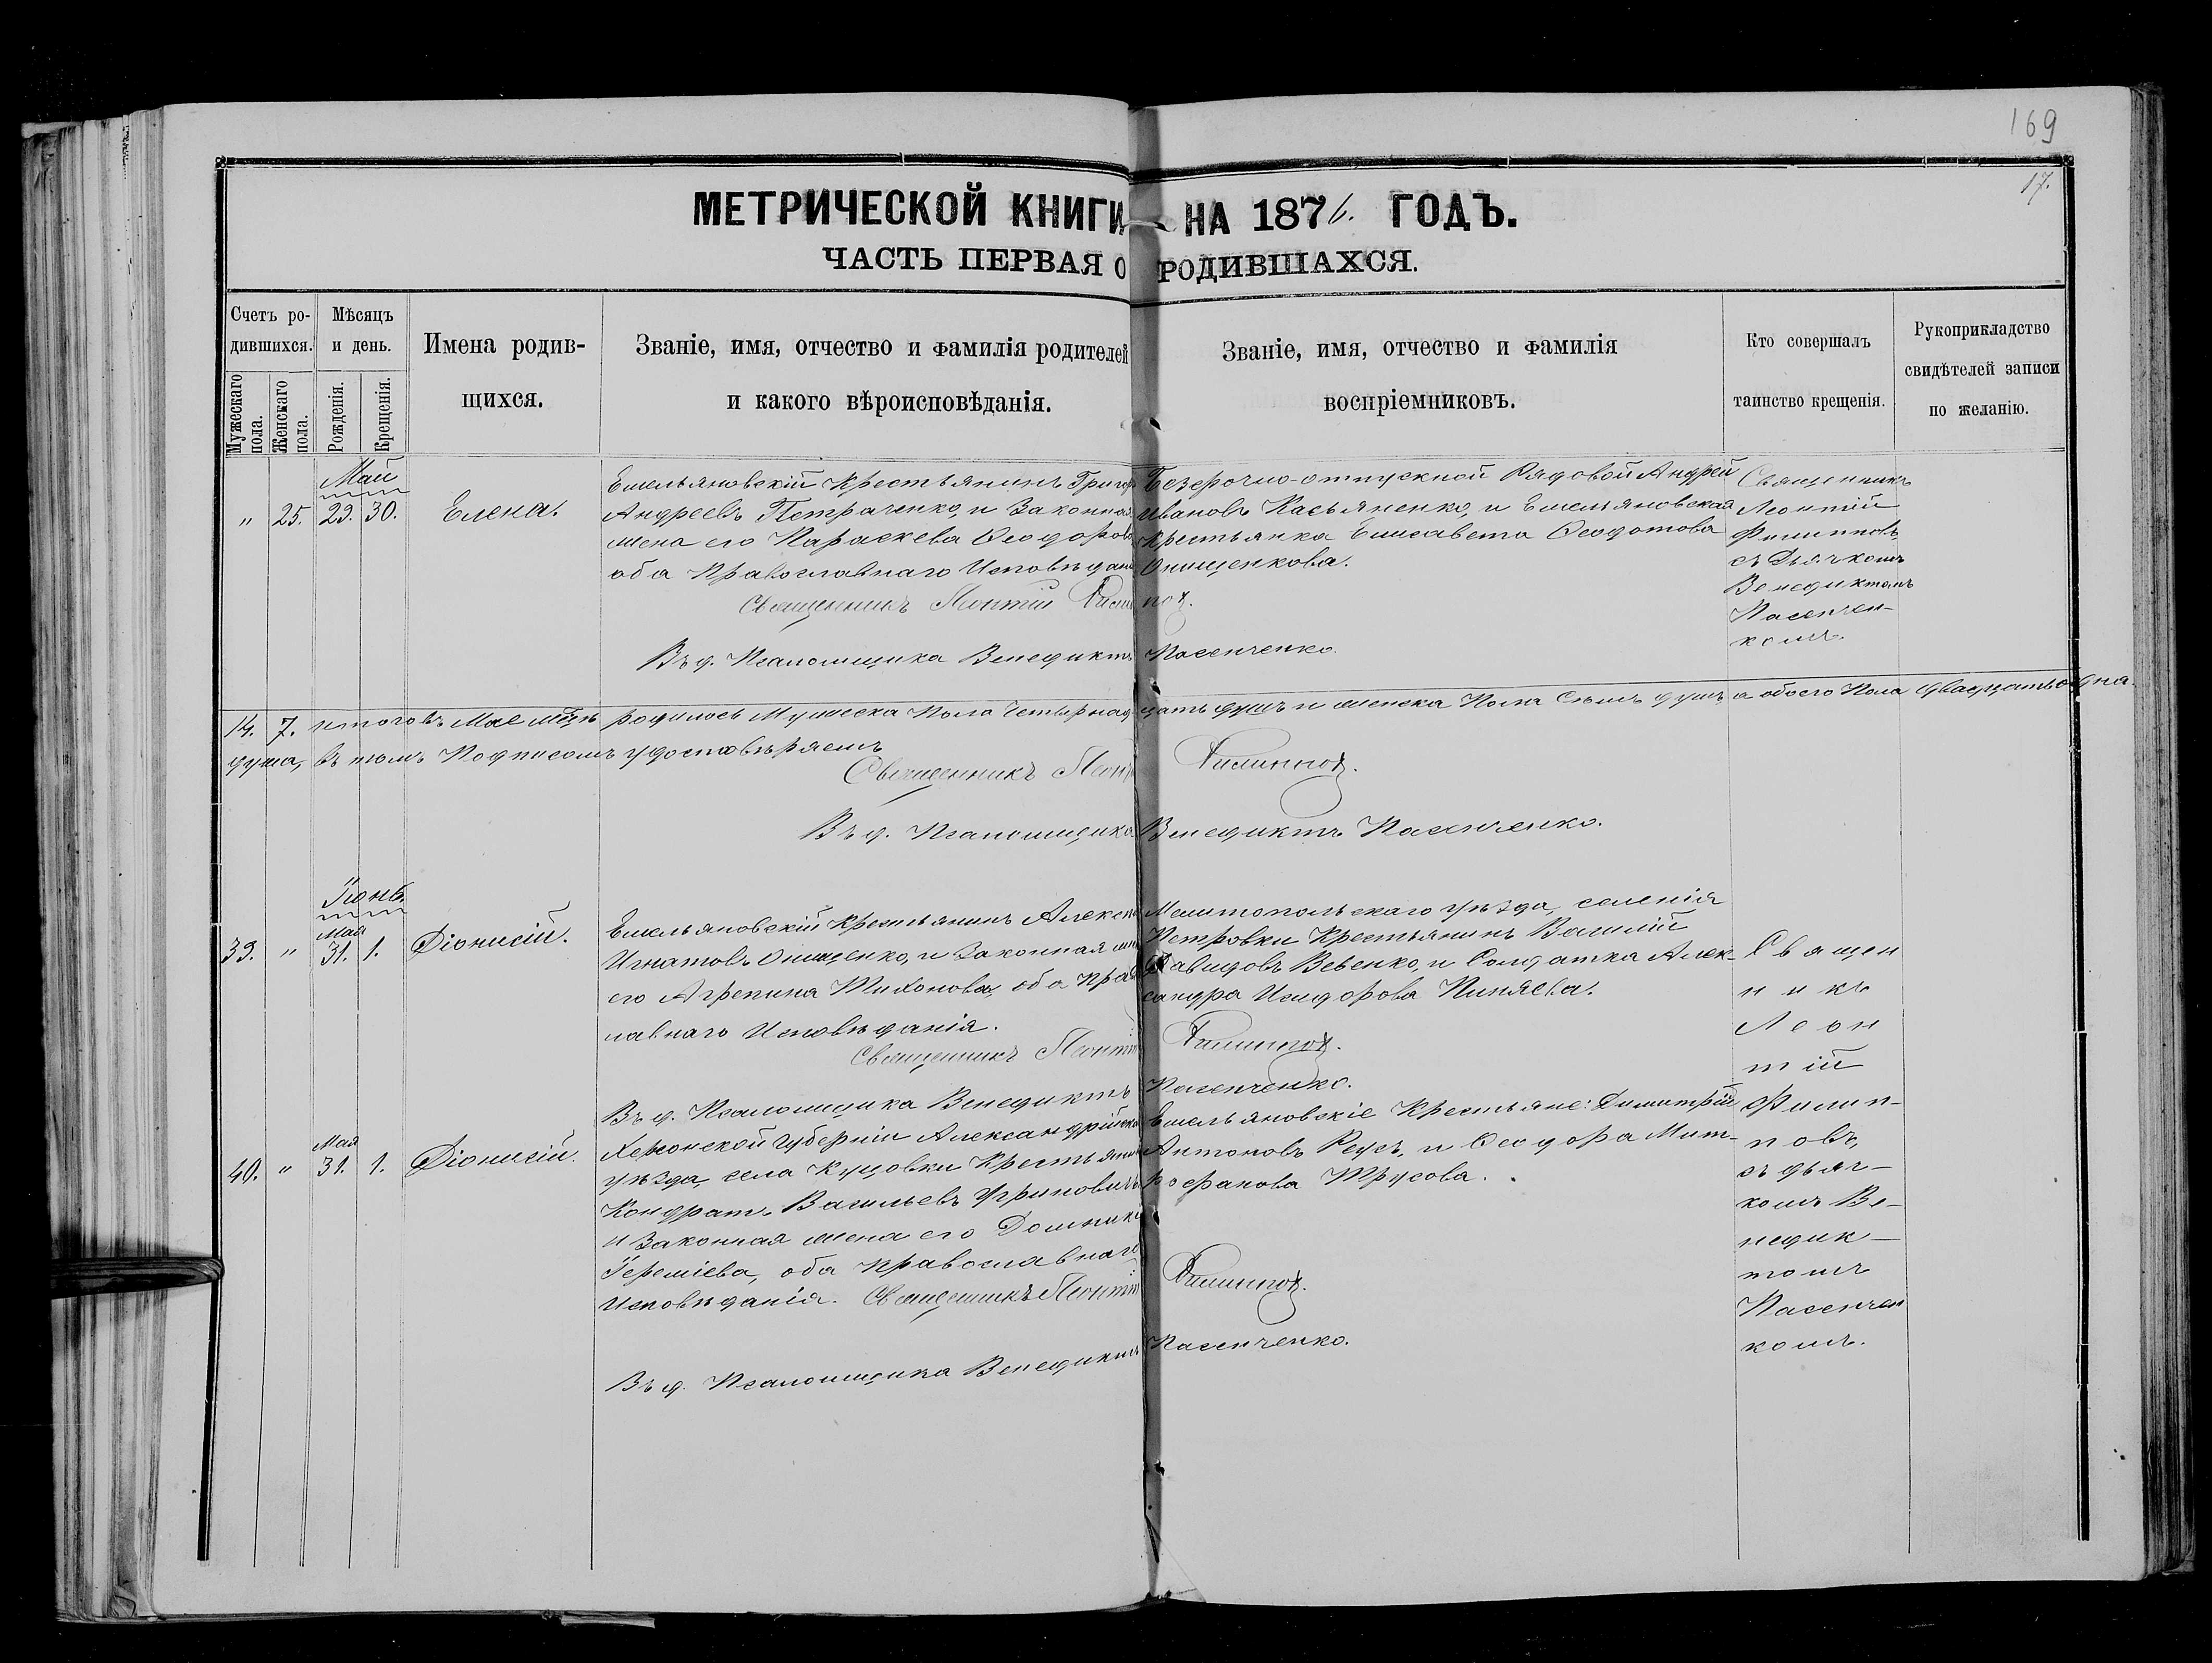 169
17.
МЕТРИЧЕСКОЙ КНИГИ НА 1876. ГОДЪ.
ЧАСТЬ ПЕРВАЯ О РОДИВШАХСЯ.
Счетъ ро-
дившихся.
Мужескаго
пола.
Женскаго
пола.
Мѣсяцъ
и день.
Рожденія.
Крещенія.
Имена родив-
щихся.
Званіе, имя, отчество и фамилія родителей
и какого вѣроисповѣданія.
Званіе, имя, отчество и фамилія
воспріемниковъ.
Кто совершалъ
таинство крещенія.
Рукоприкладство
свидѣтелей записи
по желанію.
Май
" 25. 29. 30. Елена.
Емельяновскій Крестьянинъ Григор
Андреевъ Петраченко, и Законная
жена его Параскева Ѳеодоров
оба Православнаго Исповѣдан
Священникъ Леонтій Филип
Въ д. Псаломщика Венедиктъ
Безсрочно-отпускной Рядовой Андрей
Ивановъ Касьяненко, и Емельяновская
Крестьянка Елисавета Ѳеодотова
Онищенкова.
пов.
Пасенченко.
Священникъ
Леонтій
Филиповъ
съ Дьячкомъ
Венедиктомъ
Пасенчен-
комъ.
14. 7. итого въ Маѣ мѣцѣ родилось Мужеска Пола Четырнадцать душъ и женска Пола Семь душъ а обоего Пола двадцать одна
душа, въ томъ Подписомъ удостовѣряемъ
Священникъ Леонт Филиппов.
Въ д. Псаломщика Венедиктъ Пасенченко.
Іюнь.
Мая
39. " 31. 1. Діонисій.
Емельяновскій Крестьянинъ Алекса
Игнатовъ Онищенко, и Законная жен
его Агрепина Тихонова, оба Прав
лавнаго Исповѣданія.
Священникъ Леонтій
Въ д. Псаломщика Венедиктъ
Мелитопольскаго уѣзда, селенія
Петровки Крестьянинъ Василій
Давидовъ Вевенко, и Солдатка Алек-
сандра Исидорова Пиняева.
Филиппов.
Пасенченко.
Священ
никъ
Леон
тій
Филип-
повъ,
съ дьяч-
комъ Ве-
недик-
томъ
Пасенчен
комъ.
Мая
40. " 31. 1. Діонисій.
Херсонской Губерніи Александрійска
уѣзда, села Куцовки Крестьянин
Кондратъ Васильевъ Угриновичъ
и Законная жена его Домника
Іереміева, оба Православнаго
Исповѣданія. Священникъ Леонтій
Въ д. Псаломщика Венедиктъ
Емельяновскіе Крестьяне: Димитрій
Антоновъ Реусъ, и Ѳеодора Мит-
рофанова Трусова.
Филиппов.
Пасенченко.